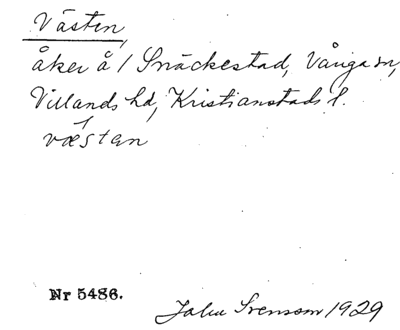 Västen,
åker å 1 Snäckestad, Vånga sn,
Villands hd, Kristianstads l.
væstan
Nr 5486.
John Svensson 1929